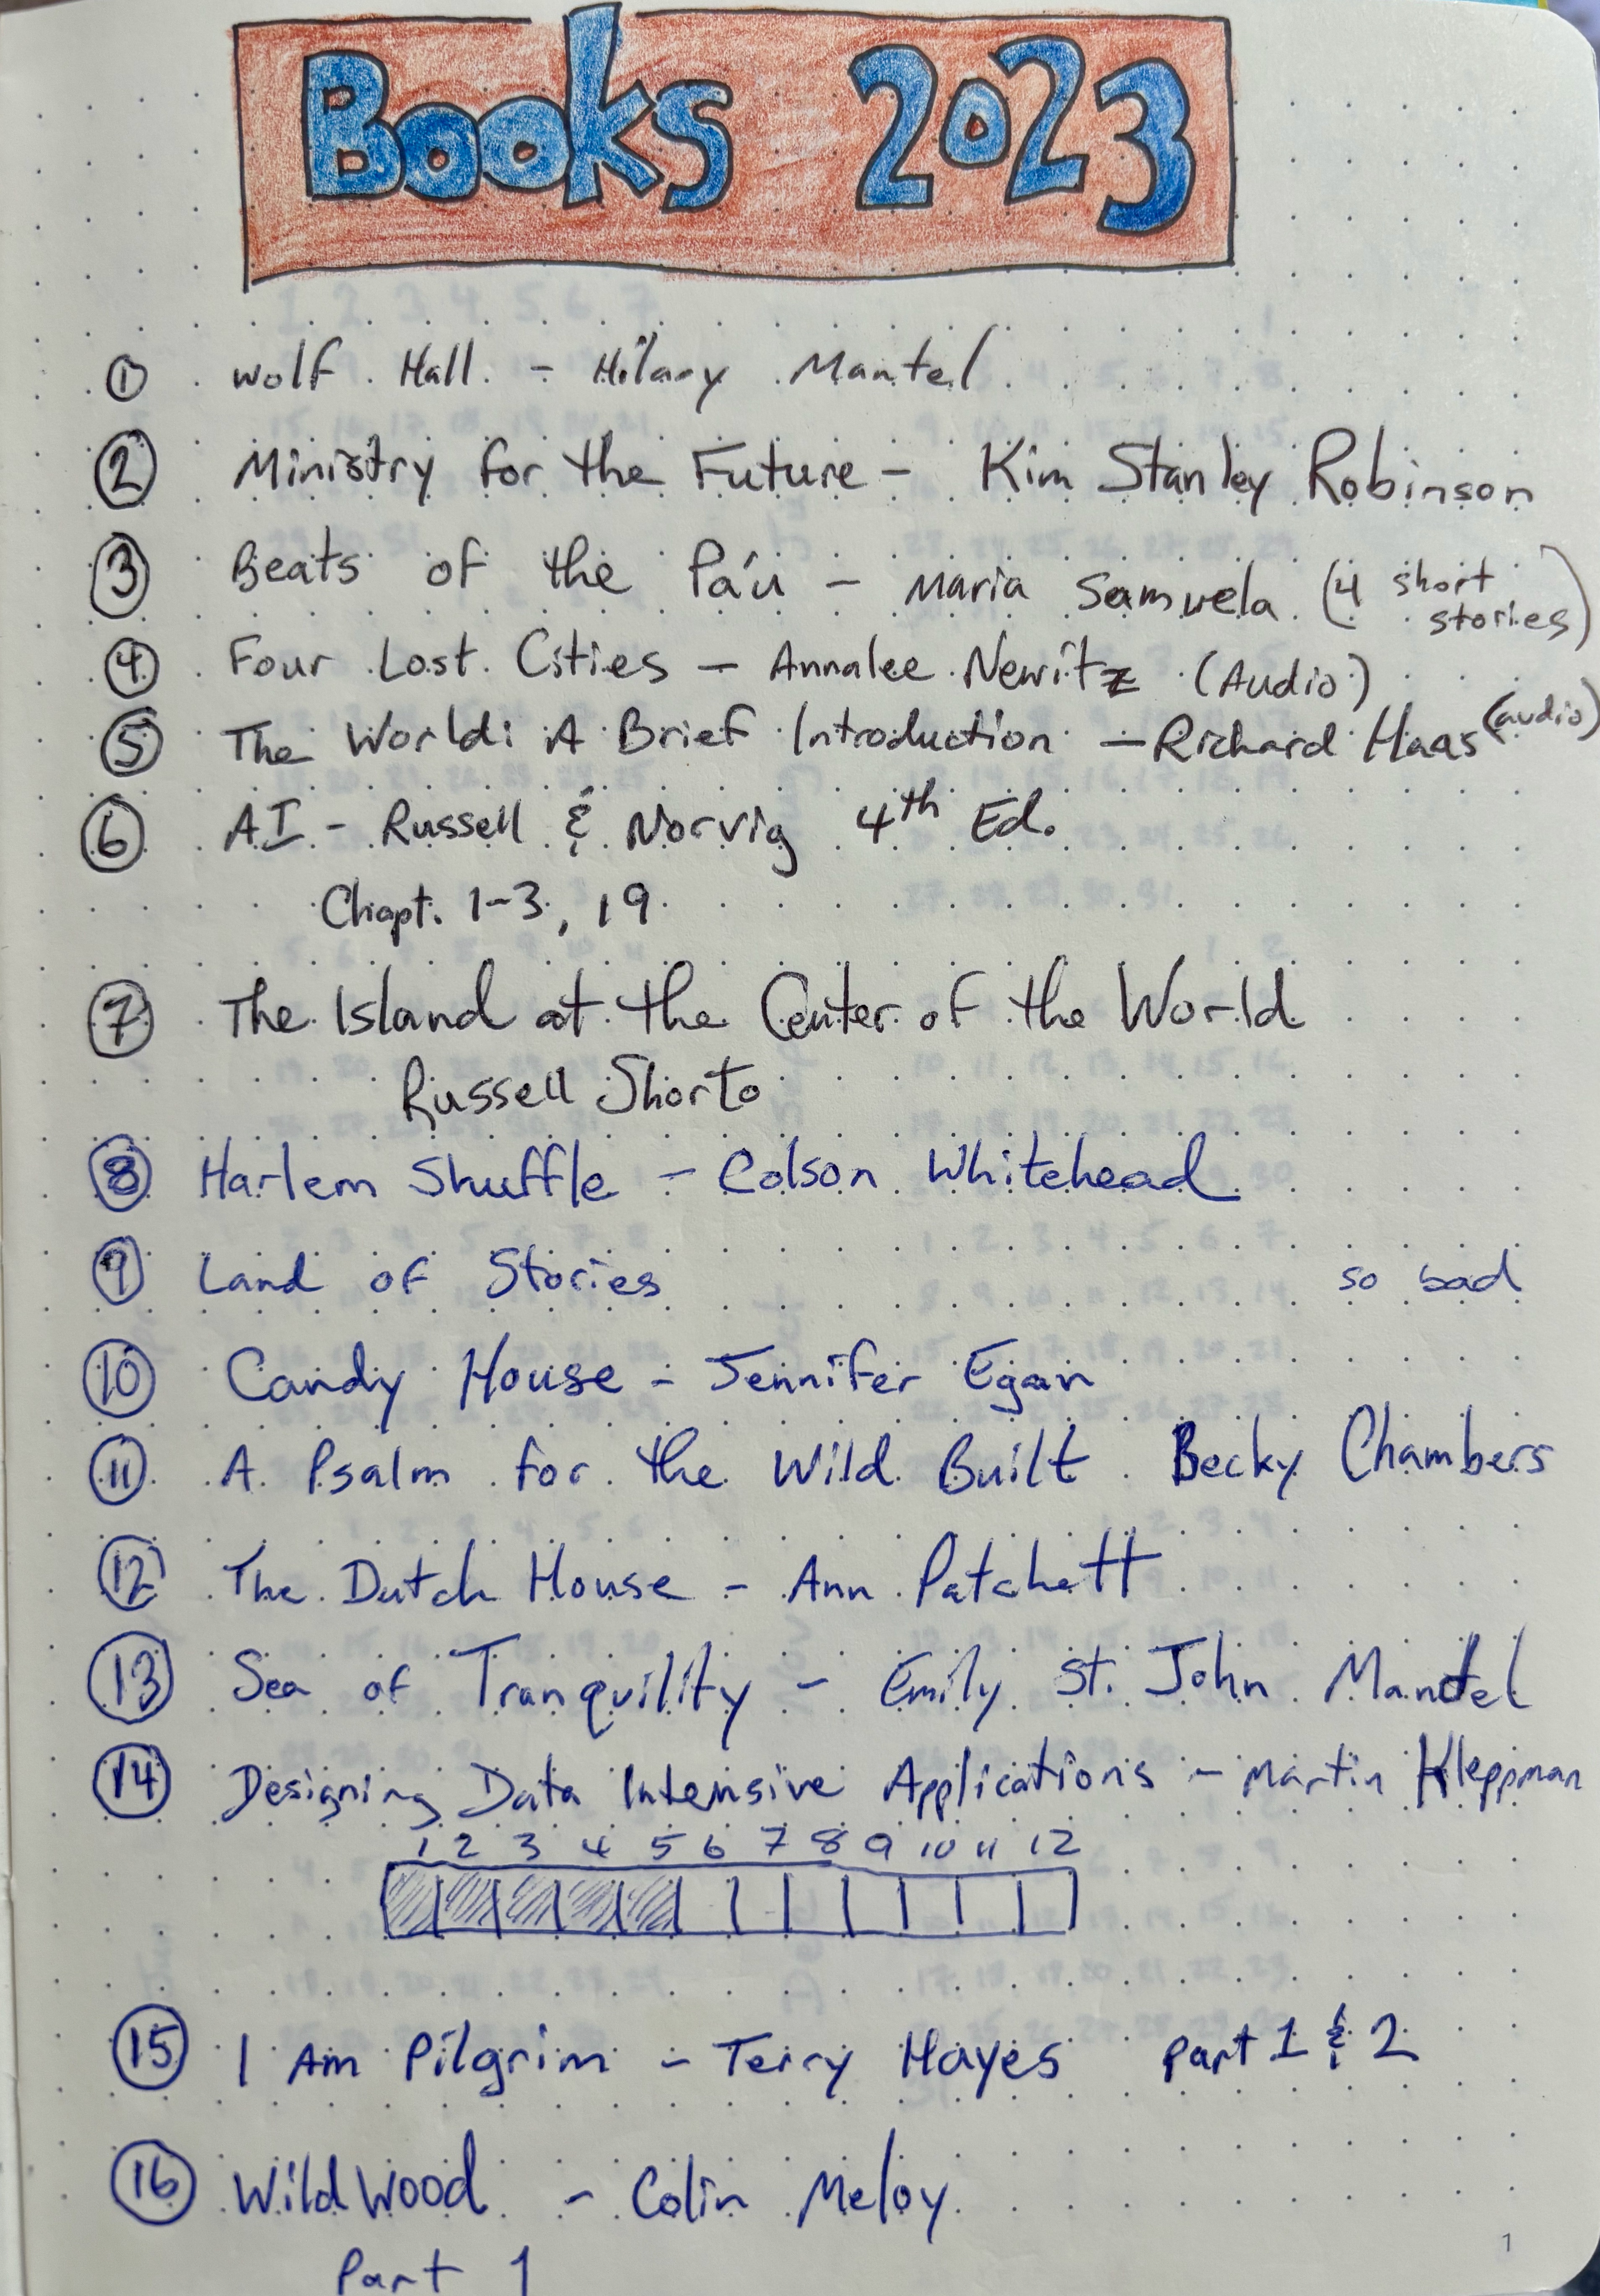 Books 2023
1 Wolf Hall - Hilary Mantel
2 Ministry for the Future - Kim Stanley Robinson
3 Beats of the Pa'u - Maria Samuela (4 short stories)
4 Four Lost Cities - Annalee Newitz (Audio)
5 The World: A Brief Introduction - Richard Haas (audio)
6 AI - Russell & Norvig 4th Ed.
Chapt. 1-3, 19
7 The Island at the Center of the World
Russell Shorto
8 Harlem Shuffle - Colson Whitehead
9 Land of Stories so bad
10 Candy House - Jennifer Egan
11 A Psalm for the Wild Built Becky Chambers
12 The Dutch House - Ann Patchett
13 Sea of Tranquility - Emily St. John Mandel
14 Designing Data Intensive Applications - Martin Kleppman
1 2 3 4 5 6 7 8 9 10 11 12
15 I Am Pilgrim - Terry Hayes Part 1 & 2
16 WildWood - Colin Meloy
Part 1
1